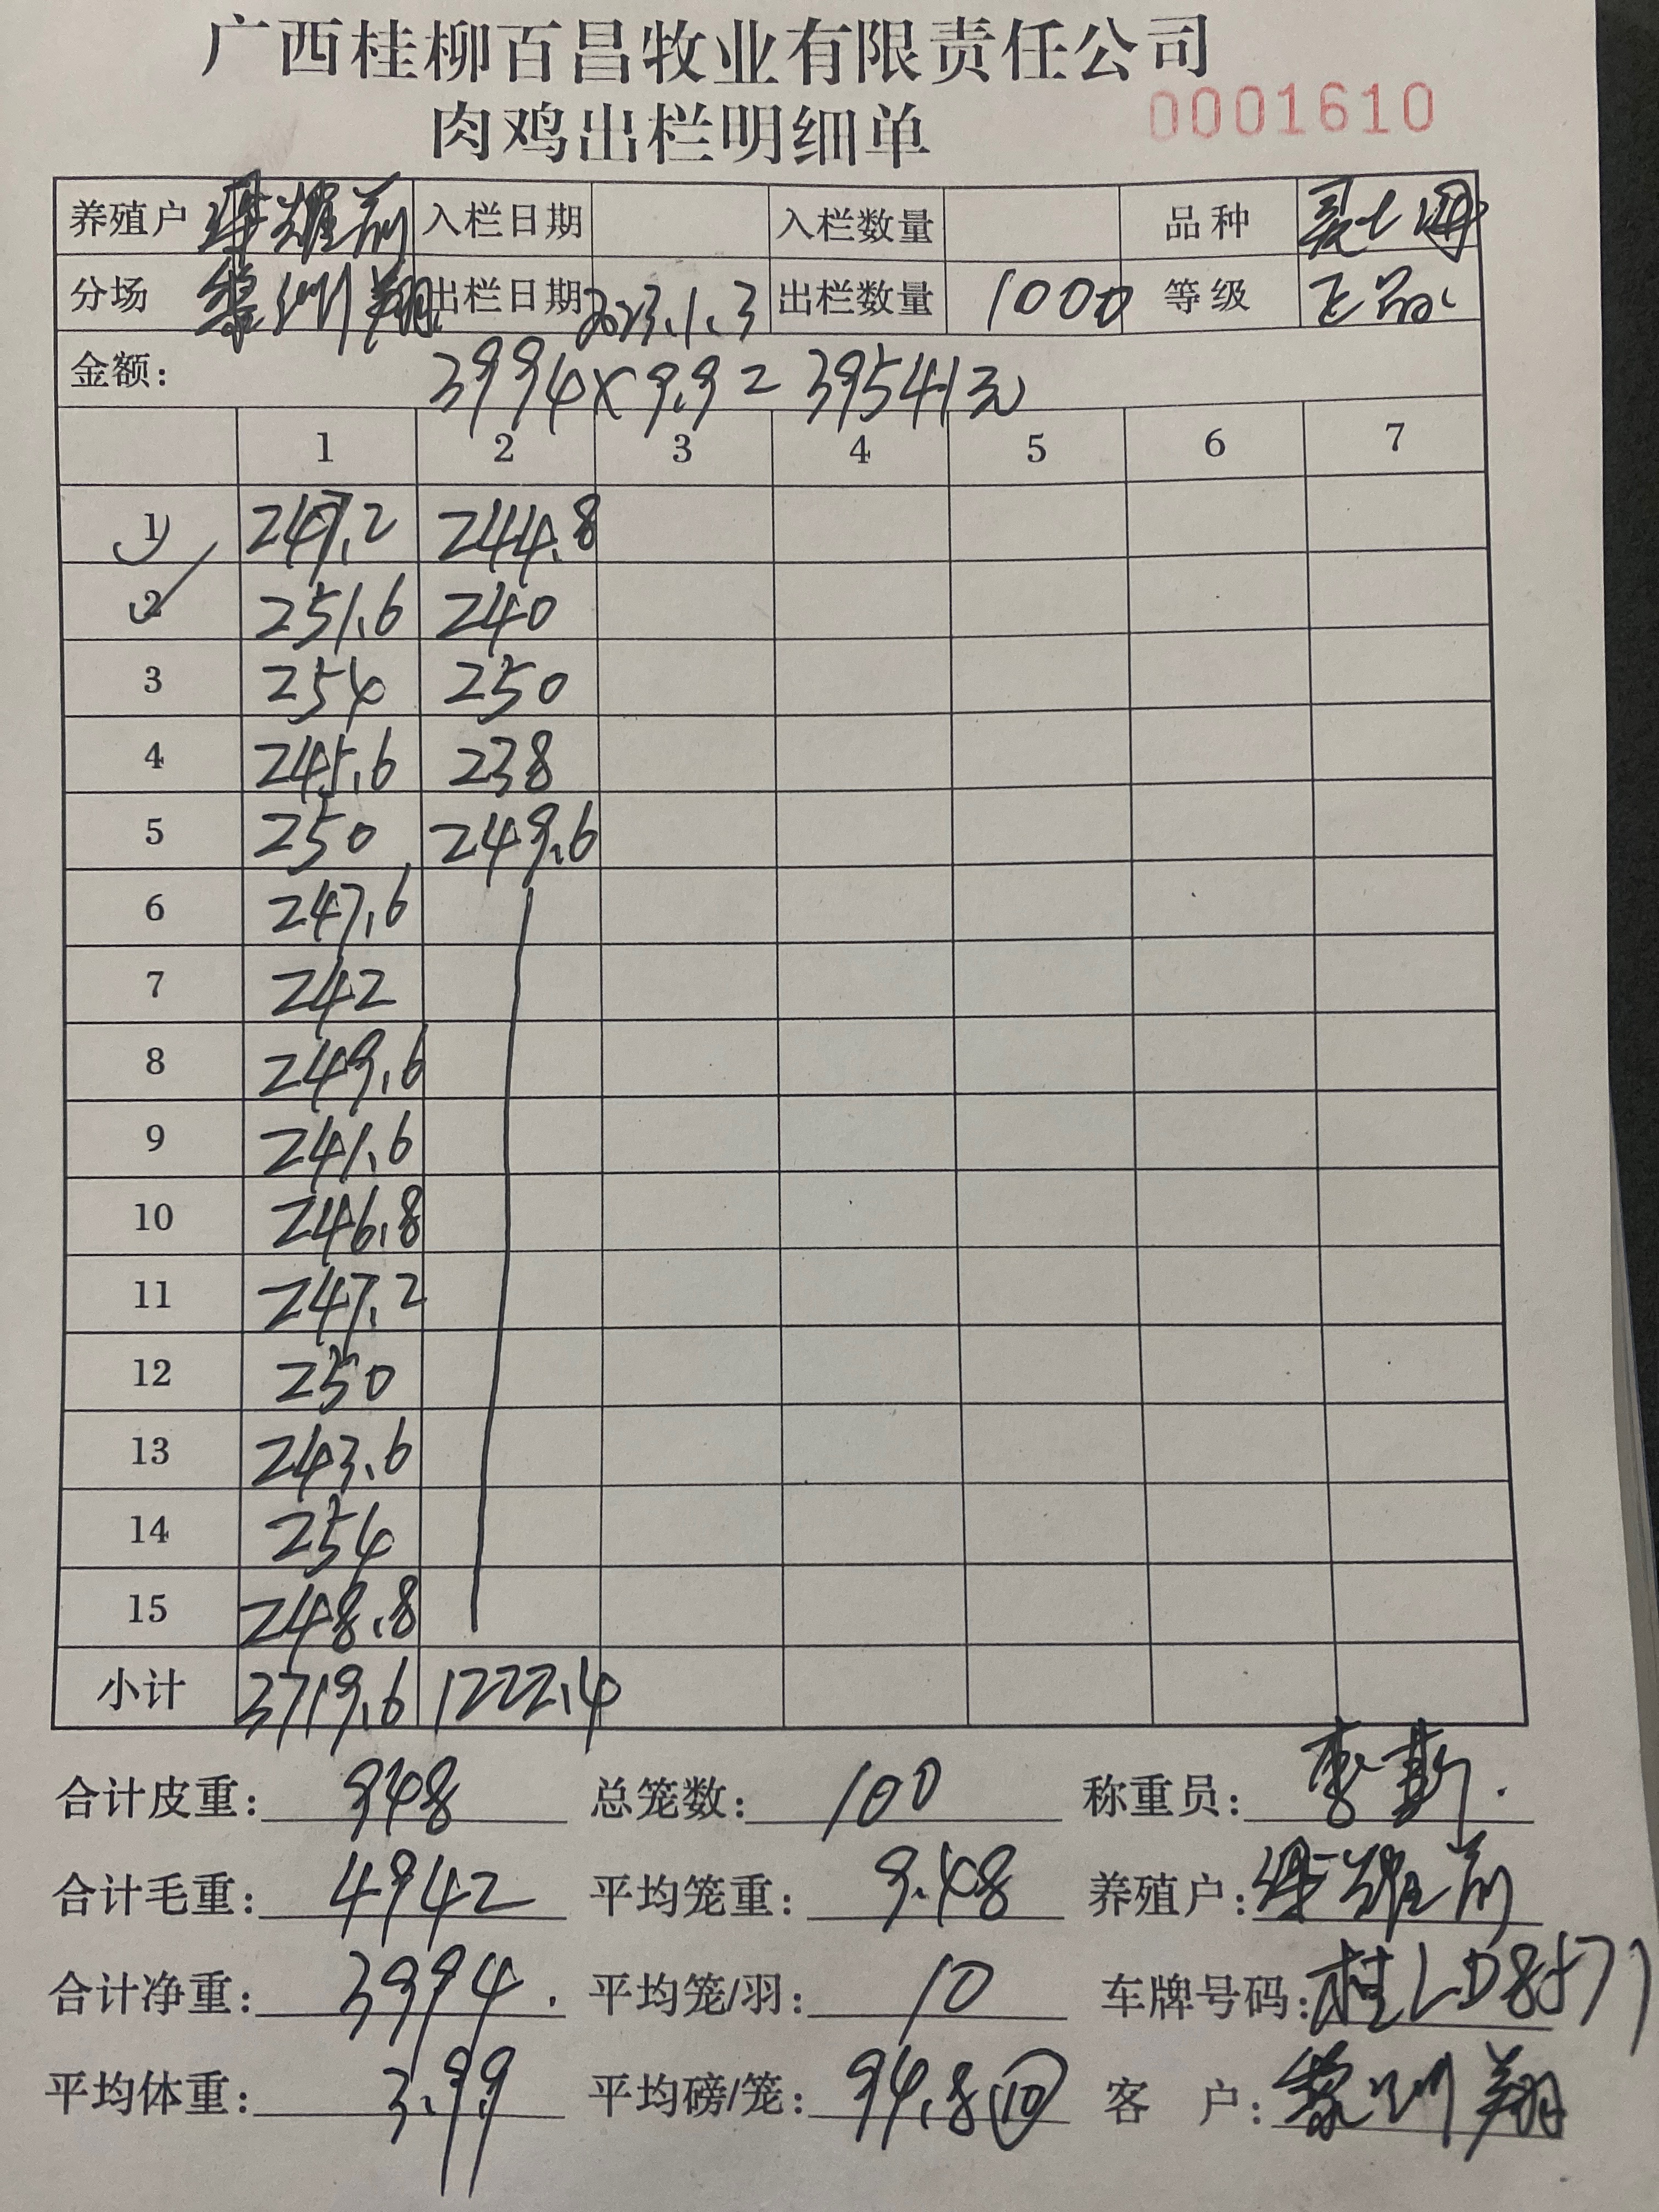 广西桂柳百昌牧业有限责任公司
肉鸡出栏明细单 0001610
养殖户 耀 入栏日期 入栏数量 品种
分场 黎训翔 出栏日期 2023.1.3 出栏数量 1000 等级 正品
金额: 3994×9.9=39541元
1 2 3 4 5 6 7
1 247.2 244.8
2 251.6 240
3 254 250
4 245.6 238
5 250 249.6
6 247.6
7 242
8 249.6
9 241.6
10 246.8
11 247.2
12 250
13 243.6
14 254
15 248.8
小计 3719.6 1222.4
合计皮重: 948 总笼数: 100 称重员: 李
合计毛重: 4942 平均笼重: 9.48 养殖户: 耀
合计净重: 3994. 平均笼/羽: 10 车牌号码: 桂LD8577
平均体重: 3.99 平均磅/笼: 94.8 ⑩ 客 户: 黎训翔